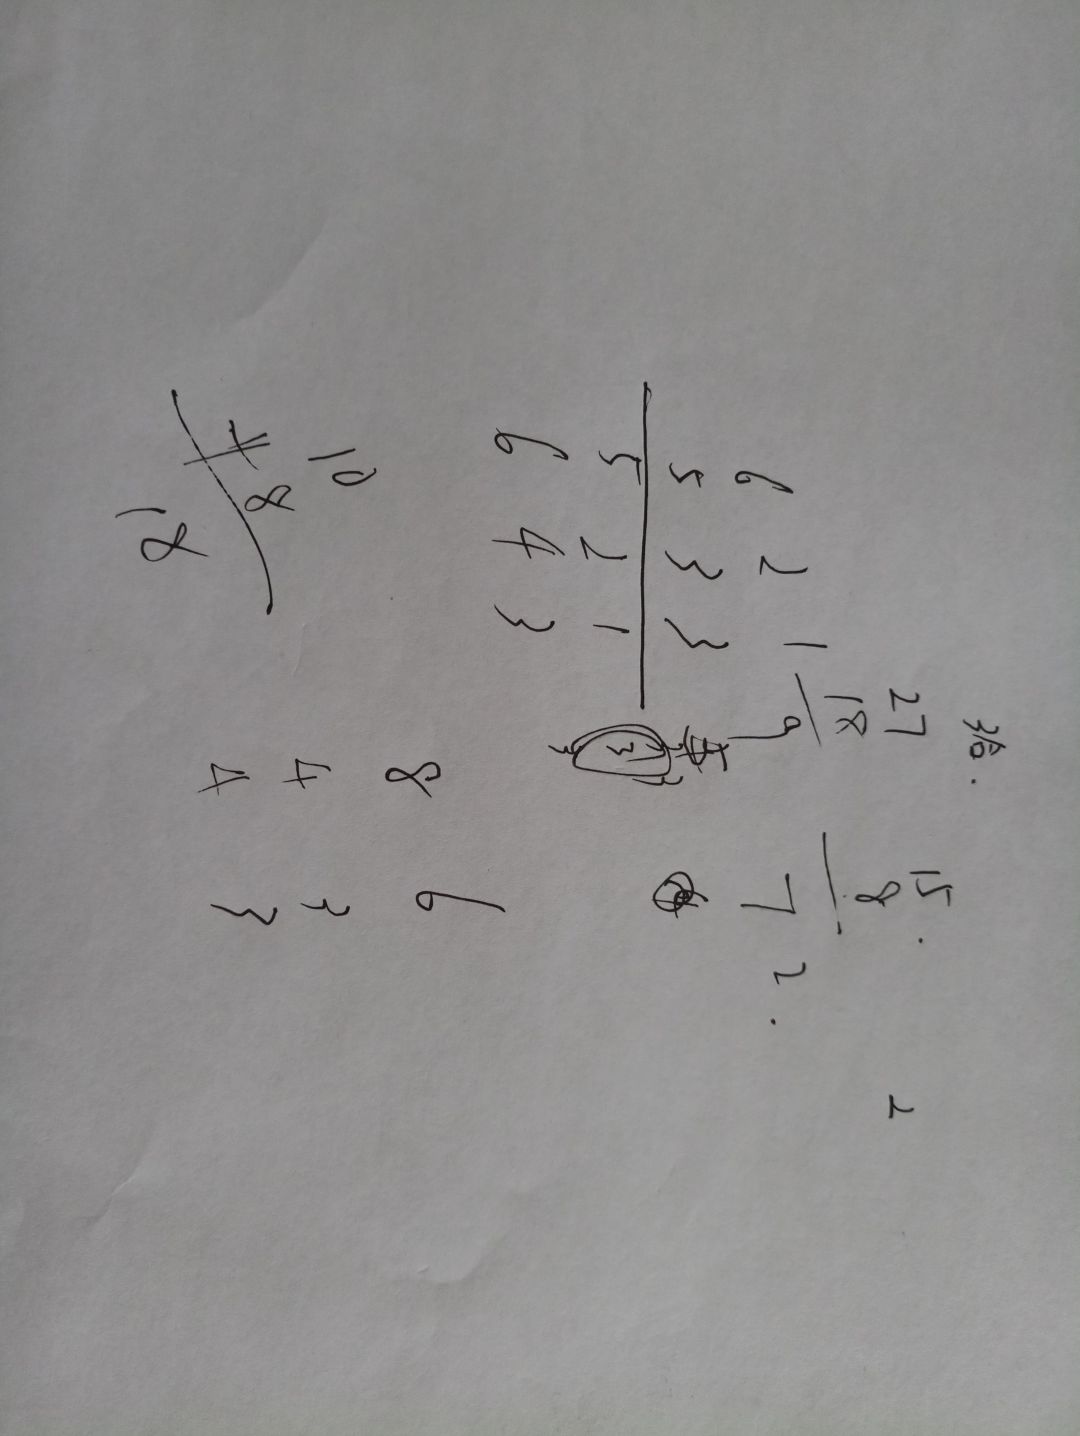 27 15. 2
18 8
6 2 1 9 7 2.
5 3 3
5 2 1 3
6 4 3
8 6
10
4 3
8
4 3
18